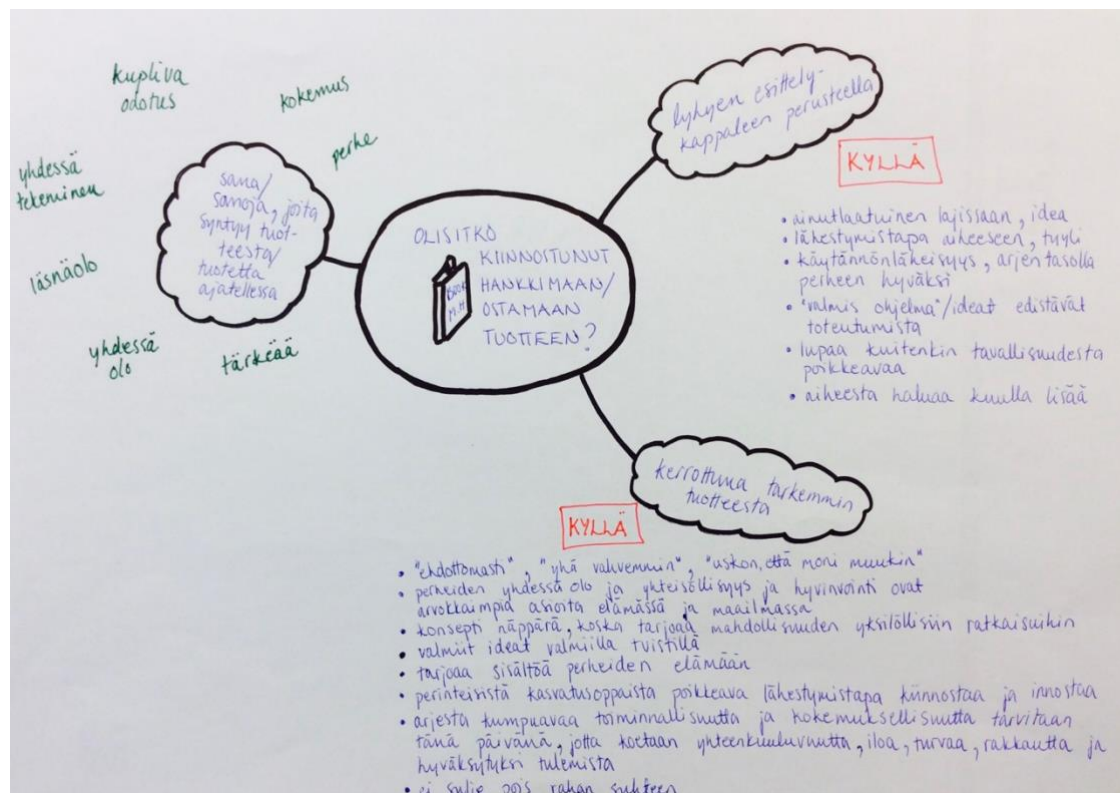 kupliva
odotus
kokemus
perhe
yhdessä
tekeminen
läsnäolo
yhdessä
olo
tärkeää
sana/
sanoja, joita
syntyy tuot-
teesta/
tuotetta
ajatellessa
OLISITKO
KIINNOSTUNUT
HANKKIMAAN/
OSTAMAAN
TUOTTEEN?
BOOK
M.M
lyhyen esittely-
kappaleen perusteella
KYLLÄ
• ainutlaatuinen lajissaan, idea
• lähestymistapa aiheeseen, tyyli
• käytännönläheisyys, arjen tasolla
perheen hyväksi
• "valmis ohjelma"/ideat edistävät
toteutumista
• lupaa kuitenkin tavallisuudesta
poikkeavaa
• aiheesta haluaa kuulla lisää
kerrottuna tarkemmin
tuotteesta
KYLLÄ
• "ehdottomasti", "yhä vahvemmin", "uskon, että moni muukin"
• perheiden yhdessä olo ja yhteisöllisyys ja hyvinvointi ovat
arvokkaimpia asioita elämässä ja maailmassa
• konsepti näppärä, koska tarjoaa mahdollisuuden yksilöllisiin ratkaisuihin
• valmiit ideat valmiilla tvistillä
• tarjoaa sisältöä perheiden elämään
• perinteisistä kasvatusoppaista poikkeava lähestymistapa kiinnostaa ja innostaa
• arjesta kumpuavaa toiminnallisuutta ja kokemuksellisuutta tarvitaan
tänä päivänä, jotta koetaan yhteenkuuluvuutta, iloa, turvaa, rakkautta ja
hyväksytyksi tulemista
• ei sulje pois rahan suhteen